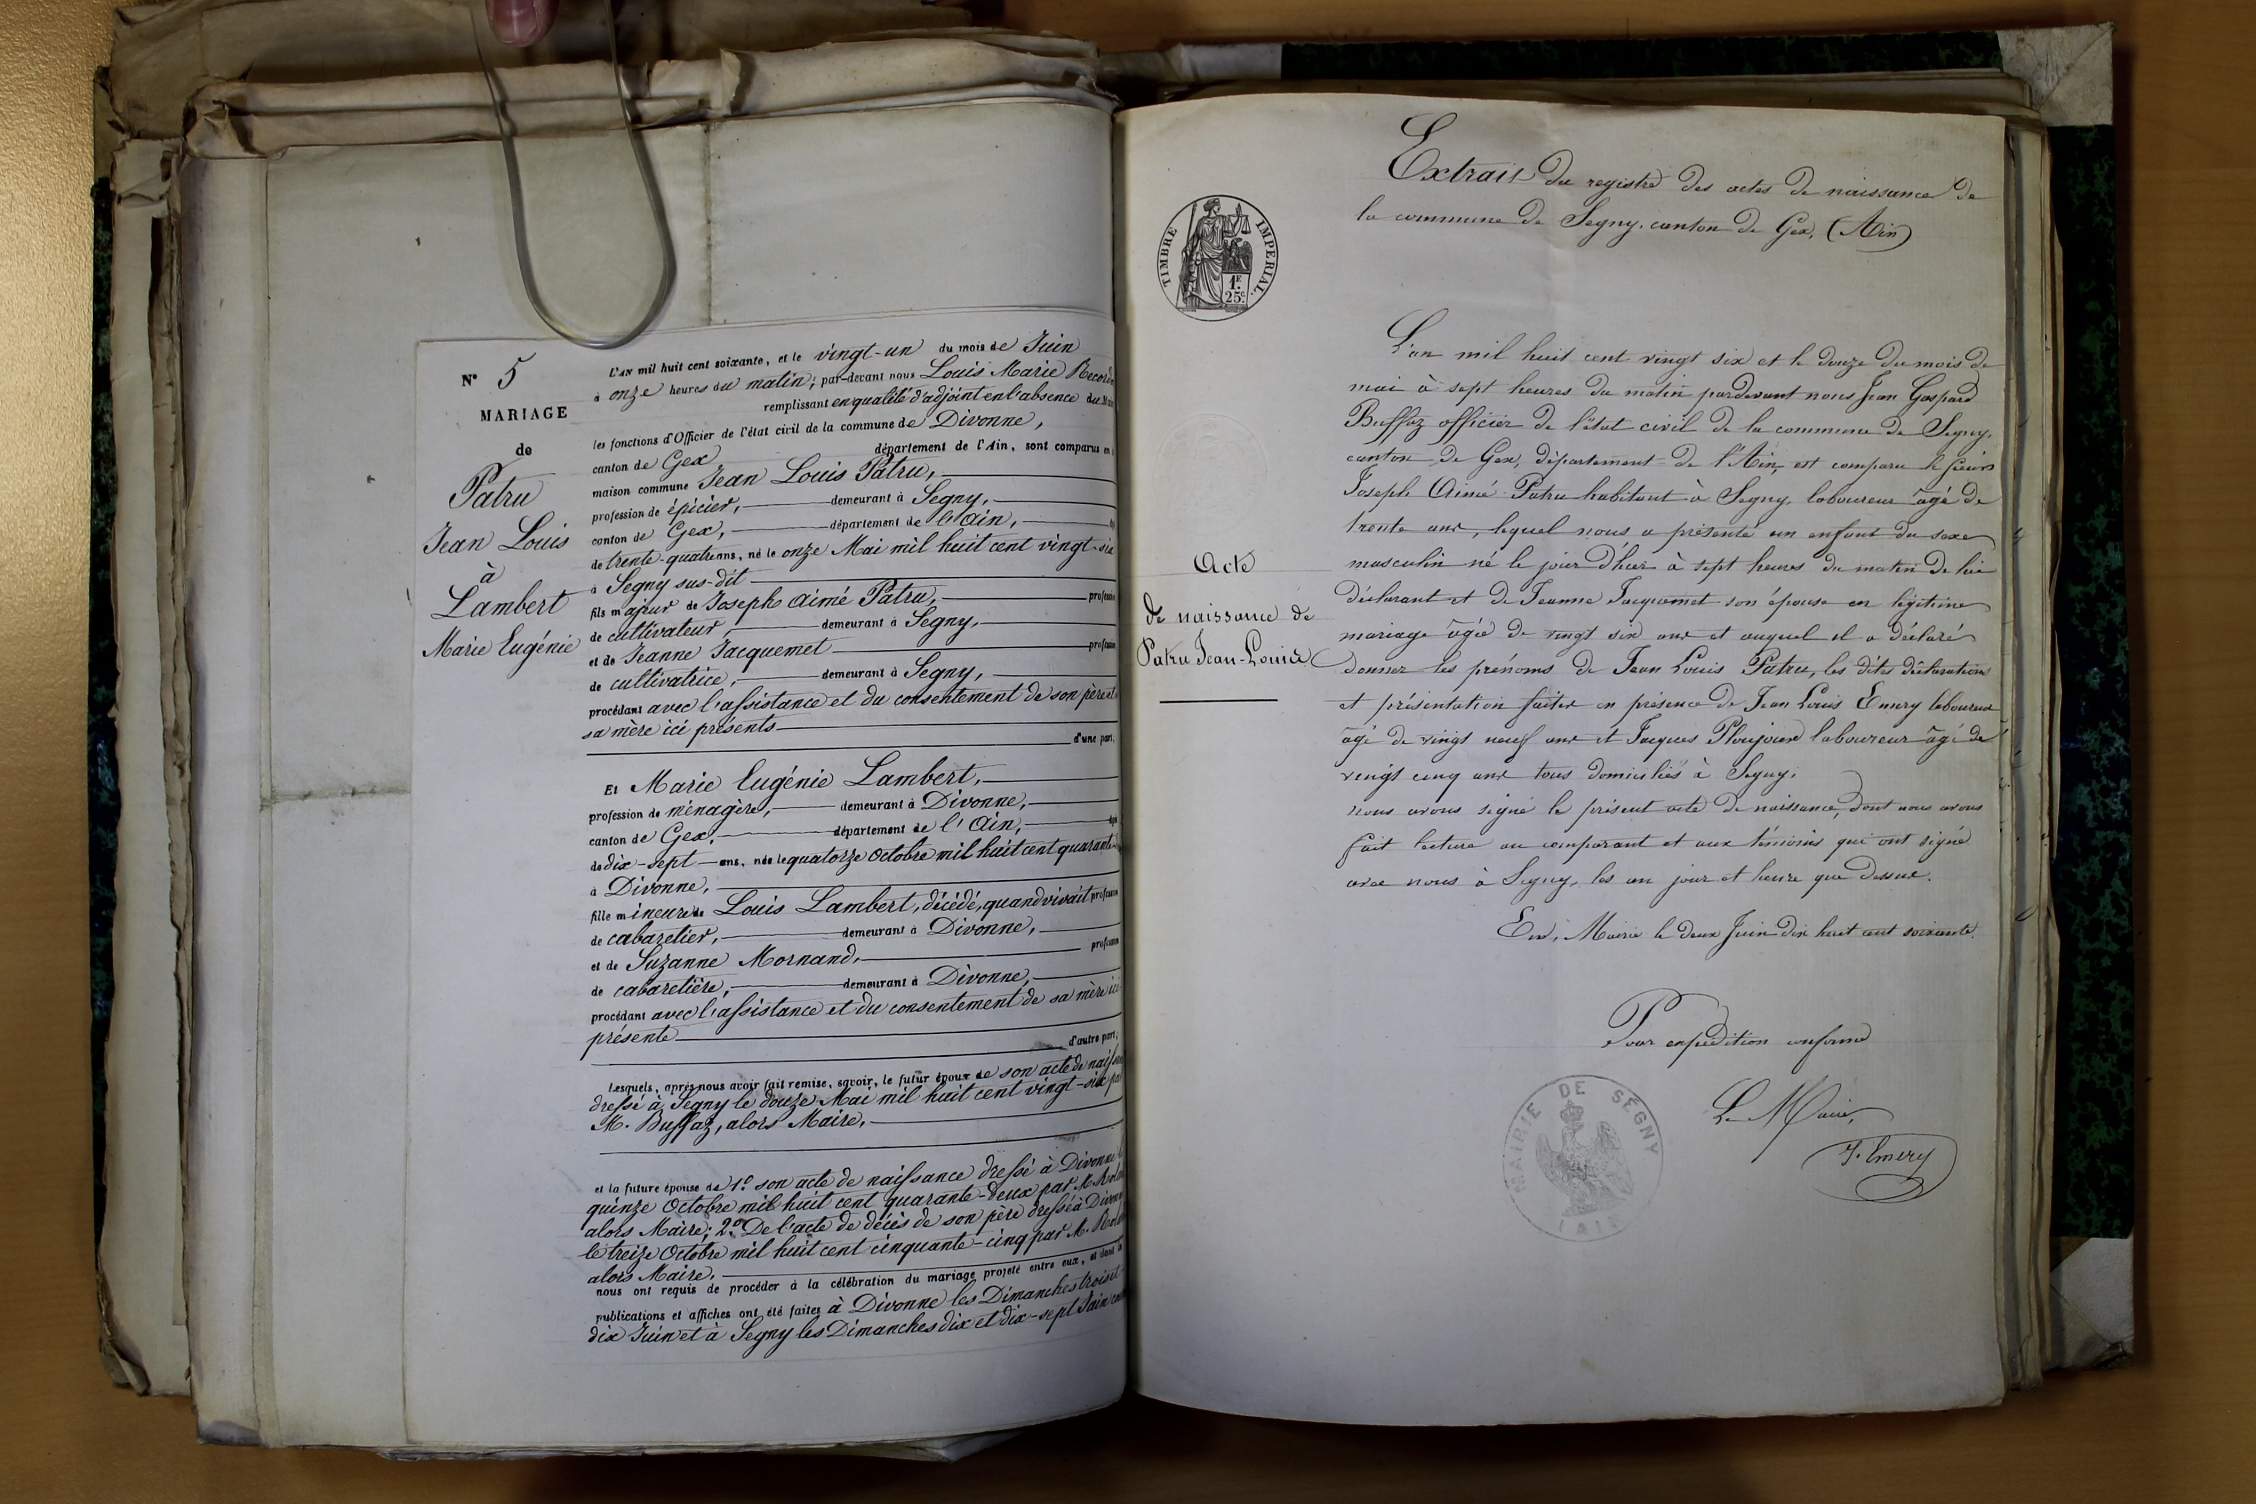 N° 5
MARIAGE
de
Patru
Jean Louis
à
Lambert
Marie Eugénie
L'AN mil huit cent soixante, et le vingt-un du mois de Juin
à onze heures du matin; par-devant nous Louis Marie
remplissant en qualité d'adjoint en l'absence du
les fonctions d'Officier de l'état civil de la commune de Divonne,
canton de Gex département de l'Ain, sont comparus en
maison commune Jean Louis Patru,
profession de épicier, demeurant à Segny,
canton de Gex, département de l'Ain,
de trente-quatre ans, né le onze Mai mil huit cent vingt-six
à Segny sus-dit
fils majeur de Joseph Aimé Patru, profession
de cultivateur, demeurant à Segny,
et de Jeanne Jacquemet profession
de cultivatrice, demeurant à Segny,
procédant avec l'assistance et du consentement de son père et
sa mère ici présents
d'une part,
Et Marie Eugénie Lambert,
profession de ménagère, demeurant à Divonne,
canton de Gex, département de l'Ain,
de dix-sept ans, née le quatorze Octobre mil huit cent quarante
à Divonne,
fille mineure de Louis Lambert, décédé, quand vivait profession
de cabaretier, demeurant à Divonne,
et de Suzanne Mornand, profession
de cabaretière, demeurant à Divonne,
procédant avec l'assistance et du consentement de sa mère ici
présente
d'autre part,
Lesquels, après nous avoir fait remise, savoir, le futur époux de son acte de
dressé à Segny le douze Mai mil huit cent vingt-six par
M. Buffaz, alors Maire,
et la future épouse de 1° son acte de naissance dressé à Divonne
quinze Octobre mil huit cent quarante-deux par M.
alors Maire; 2° De l'acte de décès de son père dressé à
le treize Octobre mil huit cent cinquante-cinq par M.
alors Maire,
nous ont requis de procéder à la célébration du mariage projeté entre eux, et dont
publications et affiches ont été faites à Divonne les Dimanches trois et
dix Juin et à Segny les Dimanches dix et dix-sept Juin
Extrait du registre des actes de naissance de
la commune de Segny, canton de Gex, (Ain)
TIMBRE IMPERIAL
1F.
25c.
L'an mil huit cent vingt six et le douze du mois de
mai à sept heures du matin pardevant nous Jean Gaspard
Buffaz officier de l'état civil de la commune de Segny,
canton de Gex, département de l'Ain, est comparu le sieur
Joseph Aimé Patru habitant à Segny, laboureur âgé de
trente ans, lequel nous a présenté un enfant du sexe
masculin né le jour d'hier à sept heures du matin de lui
déclarant et de Jeanne Jacquemet son épouse en légitime
mariage âgée de vingt six ans et auquel il a déclaré
donner les prénoms de Jean Louis Patru, les dites déclaration
et présentation faites en présence de Jean Louis Emery laboureur
âgé de vingt neuf ans et Jacques laboureur âgé de
vingt cinq ans tous domiciliés à Segny.
nous avons signé le présent acte de naissance, dont nous avons
fait lecture au comparant et aux témoins qui ont signé
avec nous à Segny, les an jour et heure que dessus.
En Mairie le deux Juin dix huit cent soixante.
Acte
de naissance de
Patru Jean-Louis
Pour expédition conforme
Le Maire,
J. Emery
MAIRIE DE SÉGNY
(AIN)